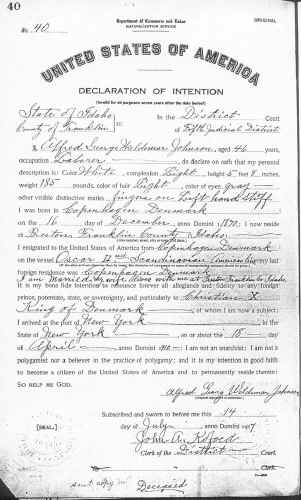 40
Department of Commerce and Labor
NATURALIZATION SERVICE
ORIGINAL
No. 40
UNITED STATES OF AMERICA
DECLARATION OF INTENTION
(Invalid for all purposes seven years after the date hereof)
State of Idaho, In the District Court
County of Franklin ss: of Fifth Judicial District
I, Alfred Georg Waldimar Johnson, aged 46 years,
occupation Laborer, do declare on oath that my personal
description is: Color White, complexion Light, height 5 feet 8 inches,
weight 185 pounds, color of hair Light, color of eyes gray
other visible distinctive marks fingers on Left hand stiff
I was born in Copenhagen Denmark
on the 10 day of December, anno Domini 1870; I now reside
at Preston Franklin County Idaho.
I emigrated to the United States of America from Copenhagen Denmark
on the vessel Oscar II Scandinavian American Line; my last
foreign residence was Copenhagen Denmark
I am married, my wife lives with me at Preston Franklin Co Idaho
It is my bona fide intention to renounce forever all allegiance and fidelity to any foreign
prince, potentate, state, or sovereignty, and particularly to Christian X
King of Denmark, of whom I am now a subject;
I arrived at the port of New York, in the
State of New York on or about the 18 day
of April, anno Domini 1910; I am not an anarchist; I am not a
polygamist nor a believer in the practice of polygamy; and it is my intention in good faith
to become a citizen of the United States of America and to permanently reside therein:
SO HELP ME GOD.
Alfred Georg Waldimar Johnson
Subscribed and sworn to before me this 14
[SEAL.] day of July, anno Domini 1917
John A. Kofoed
Clerk of the District Court
sent copy in Deceased